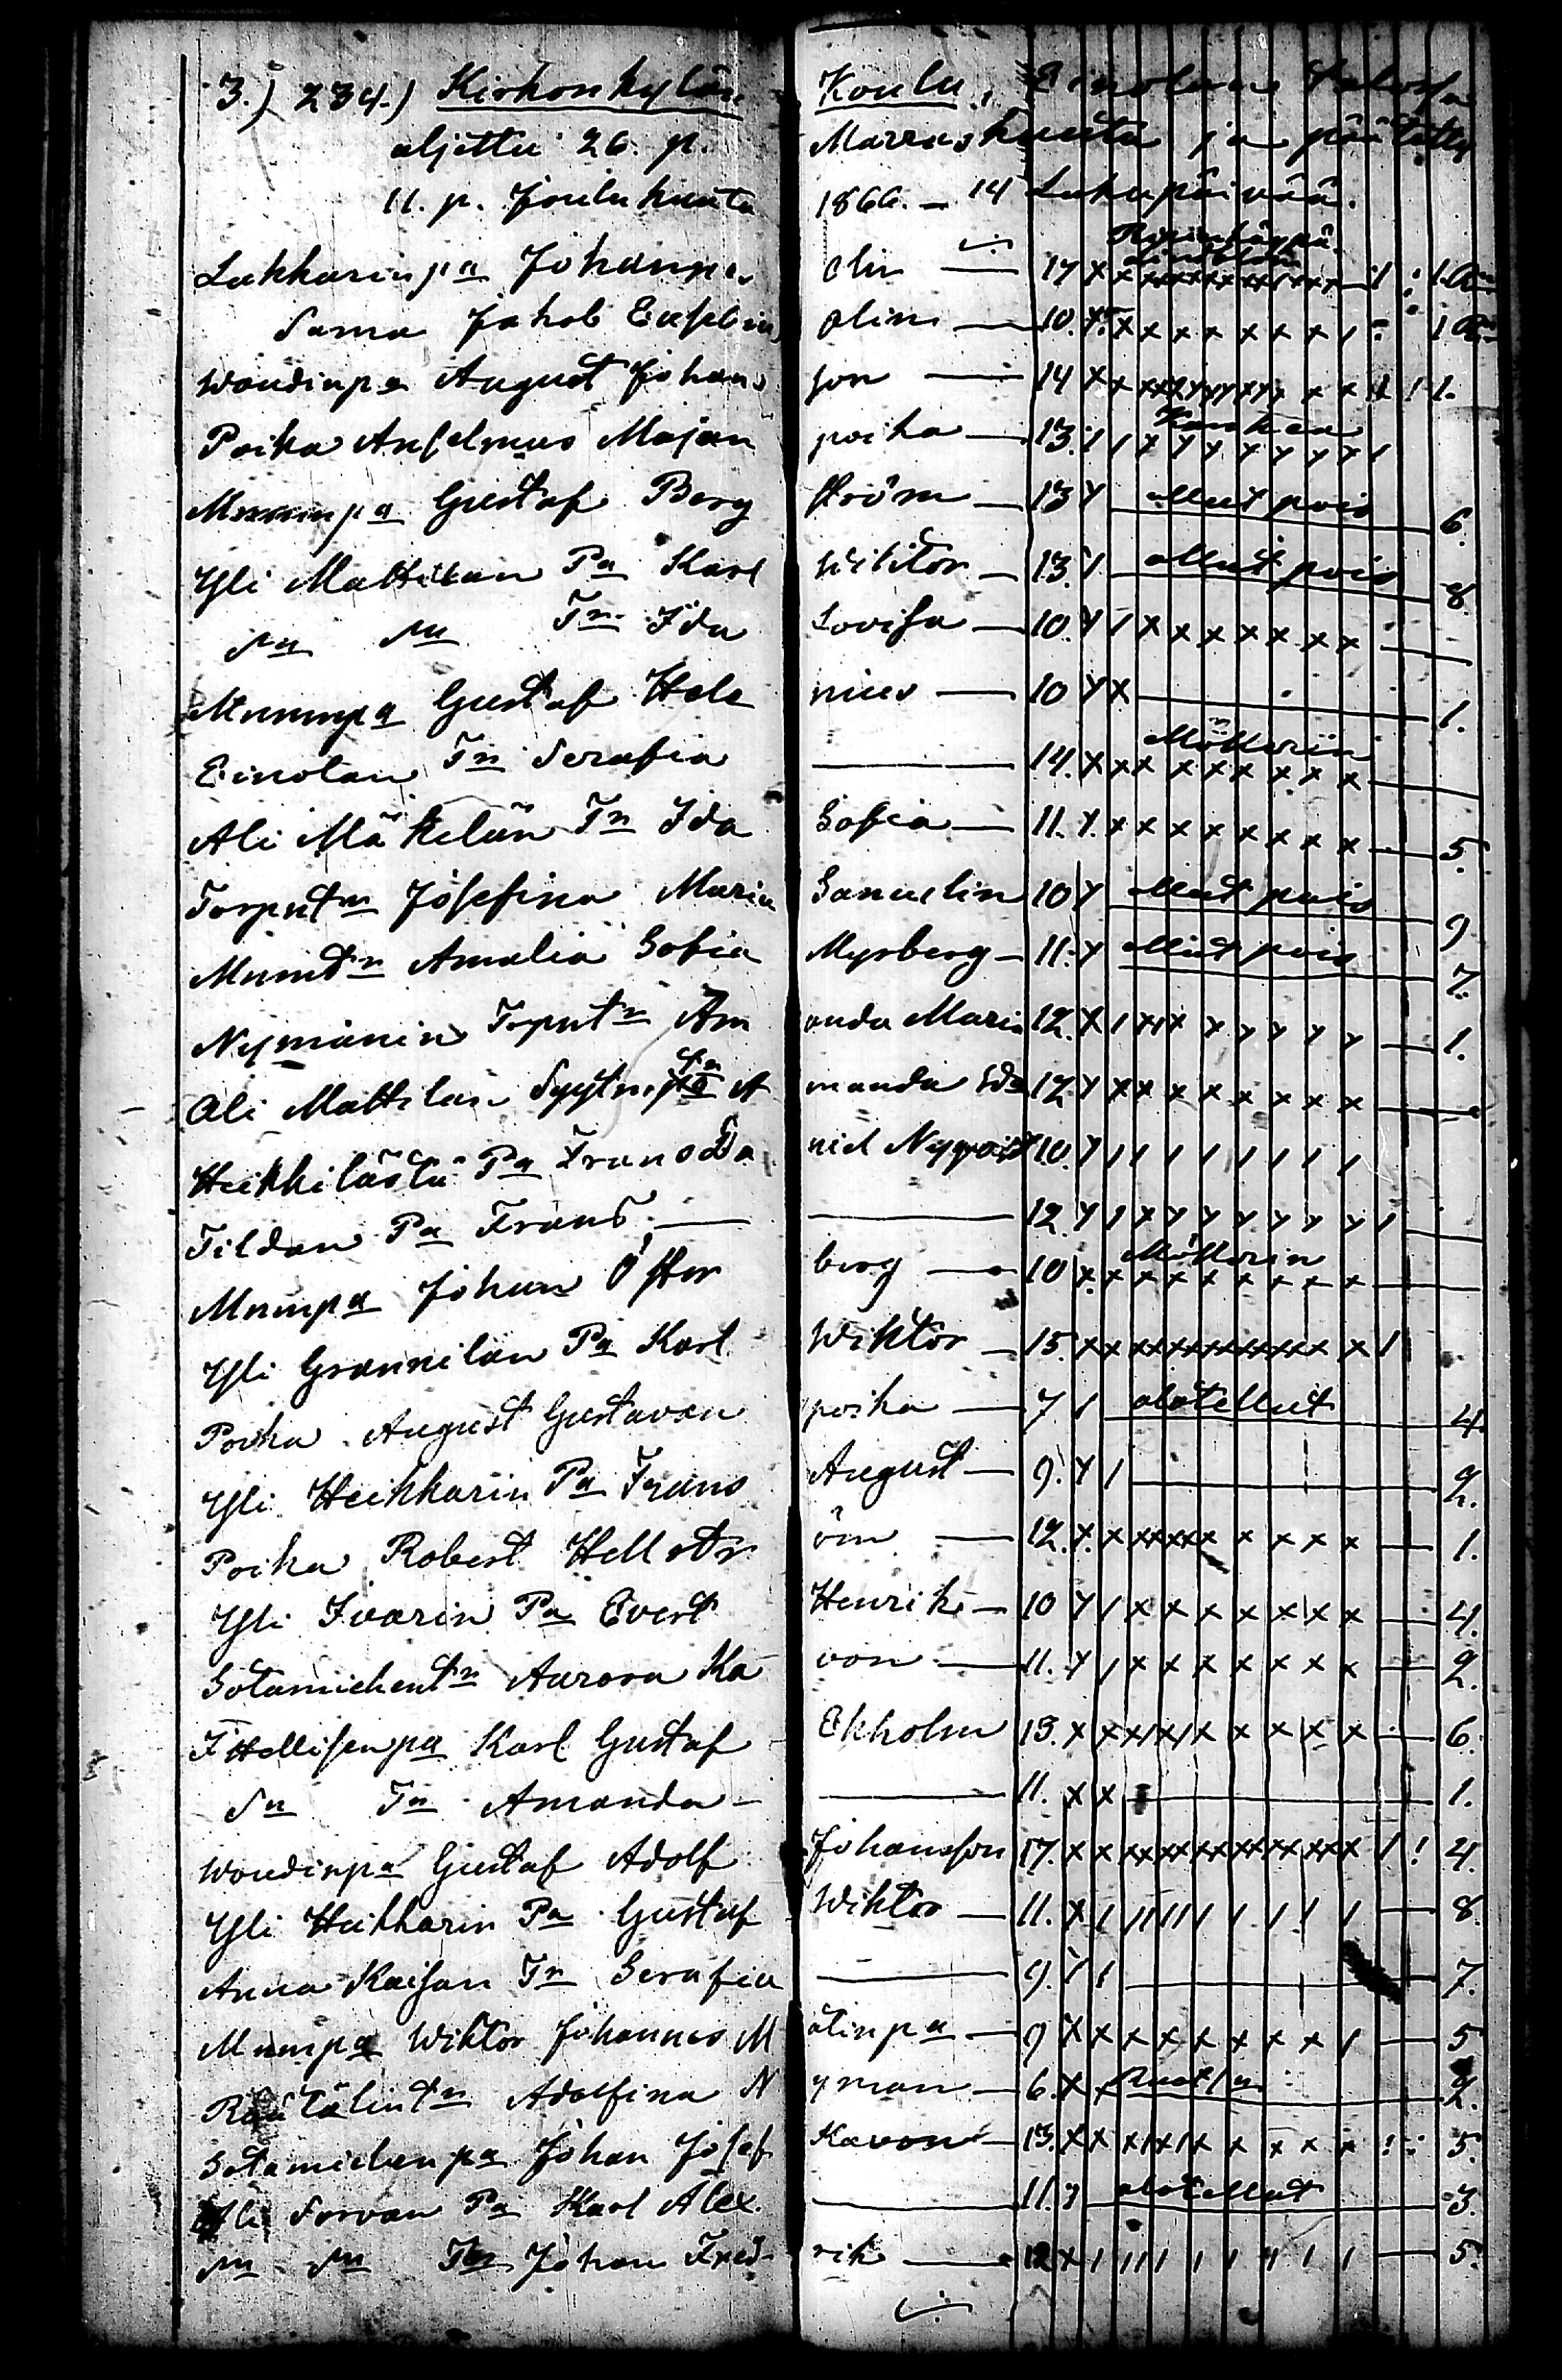 3.) 234.) Kirkonkylän Koulu, Einolan Talossa
aljettu 26. p. Marraskuuta ja päätetty
11. p. Joulukuuta 1866. — 14 Lukupäivää.
Lukkarin pa Johannes Olin — 17
Sama Jakob Eusebius Olin — 10.
Woudinpa August Johansson — 14
Poika Anselmus Majanpoika — 13.
Gustaf Bergström — 13 ollut pois 6.
Yli Mattilan Pa Karl Wihtor — 13. ollut pois 8.
Sn Sn Tr Ida Lovisa — 10.
Mnmnpa Gustaf Helenius — 10 1.
Einolan Tr Serafia — 14. Möllerin
Ali Mäkelän Tr Ida Sofia — 11. 5.
Torputr Josefina Maria Samuelin 10 ollut pois 9
Amalia Sofia Myrberg — 11. ollut pois 7.
Nymanin Torputr Amanda Maria 12. 1.
Ali Mattilan Amanda Ida 12
Heikkilästä Pa Frans Daniel Nyqvist 10.
Tildan Pa Frans — 12
Mnmpa Johan Österberg — 10 Möllerin
Yli Grannilan Pa Karl Wihtor — 15.
Poika August Gustavanpoika — 7 olotellut 4
Yli Heikkarin Pa Frans August — 9. 2.
Poika Robert Hellström — 12. 1.
Yli Ivarin Pa Evert Henrik — 10 4.
Sotamiehentr Aurora Kavon — 11. 2.
Karl Gustaf Ekholm 13. 6.
Sn Tr Amanda — 11. 1.
Woudinpa Gustaf Adolf Johansson 17. 4.
Yli Heikkarin Pa Gustaf Wihtor — 11. 8.
Anna Kaisan Tr Serafia — 9. 7.
Mnmpa Wihtor Johannes Mätinpa — 9 5
Räätälintr Adolfina Nyman — 6. 2.
Sotamiehenpa Johan Josef Kavon — 13. 5.
Yli Sorvan Pa Karl Alex. — 11. olotellut 3.
Sn Sn Johan Fredrik — 12 5.